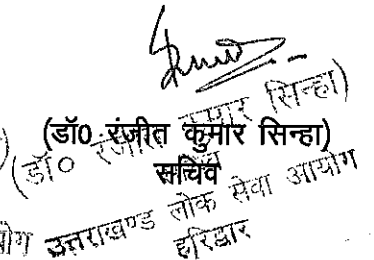 (डॉ0 रंजीत कुमार सिन्हा)
सचिव
(डॉ० रंजीत कुमार सिन्हा)
उत्तराखण्ड लोक सेवा आयोग
हरिद्वार